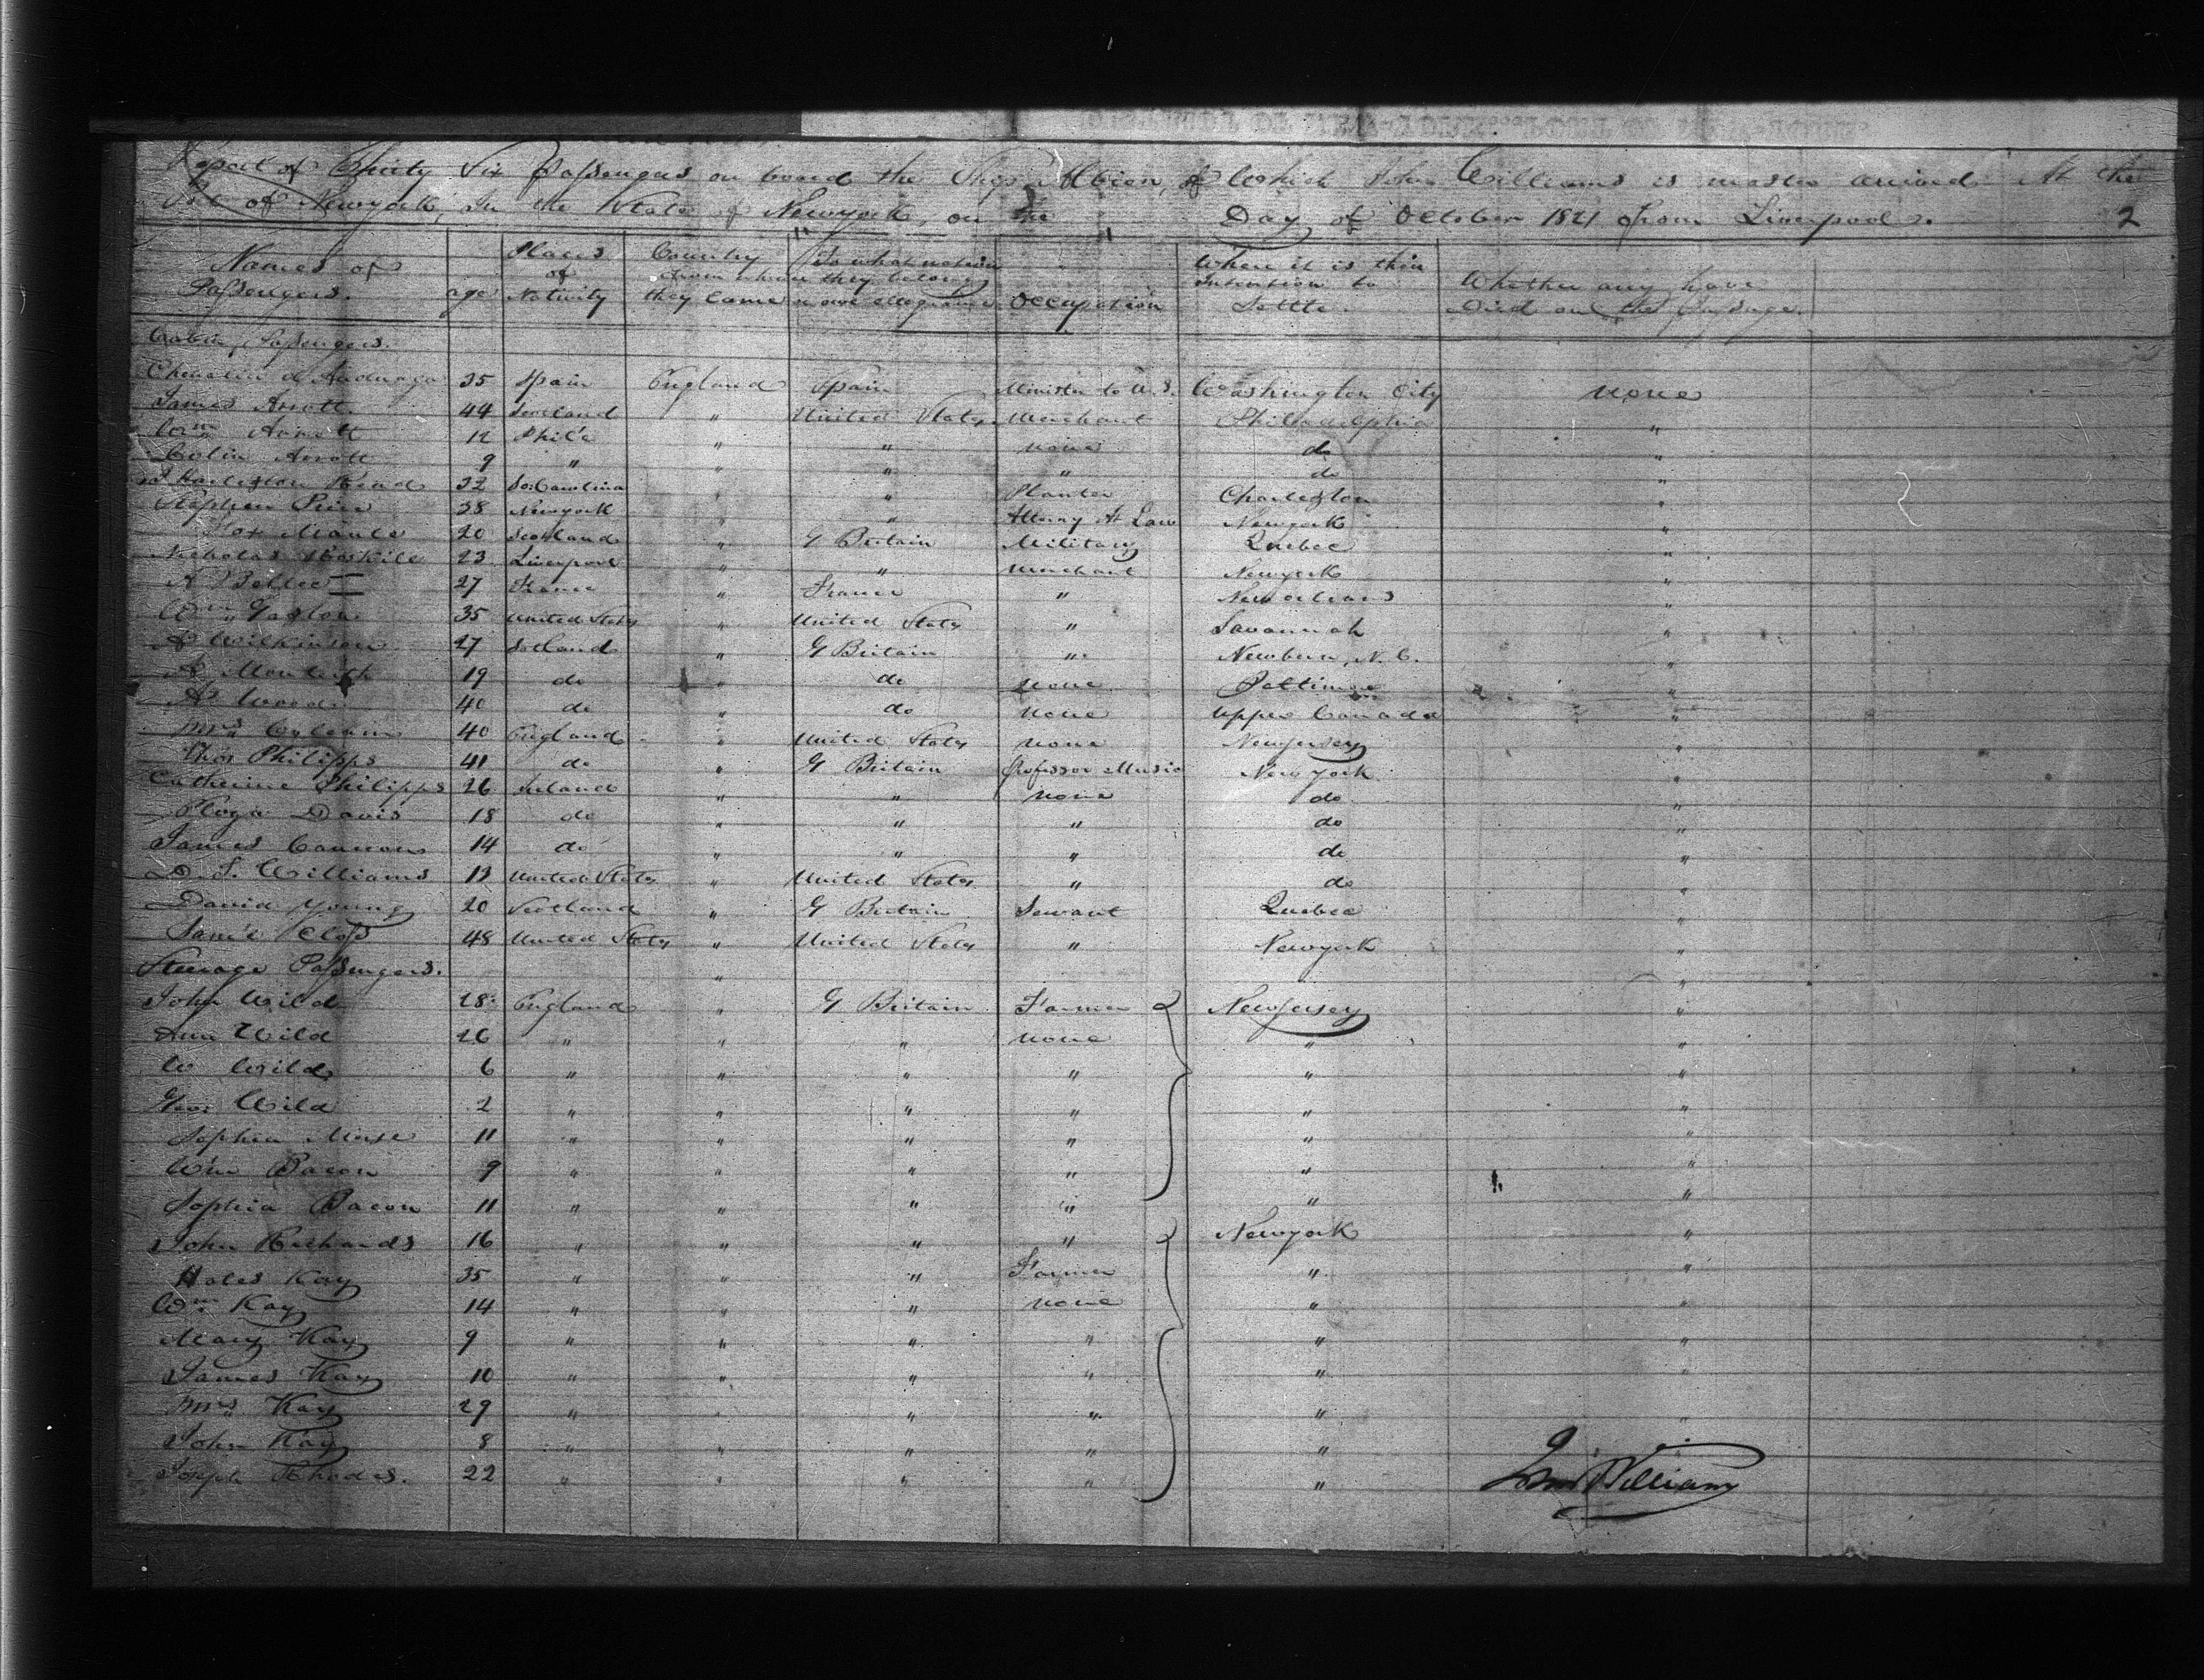 Report of Thirty Six Passengers on board the Ship Albion, of Which John Williams is master arrived At the
Port of Newyork, In the State of Newyork, on the Day of October 1821 from Liverpool. 2
Names of Passengers. age Places of Nativity Country from whence they Came To what nation they belong or owe allegiance Occupation Where it is their Intention to Settle. Whether any have Died on the Passage.
Cabin Passengers.
Chevalier d Anduaga 35 Spain England Spain Minister to U.S. Washington City none
James Arrott 44 Scotland " United States Merchant Philadelphia "
Wm Arrott 12 Phil'a " " none do "
Colin Arrott 9 " " " " do "
32 So. Carolina " " Planter Charleston "
Stephen Price 38 Newyork " " Attorny At Law Newyork "
Fox Maule 20 Scotland " G Britain Military Quebec "
Nicholas 23 Liverpool " " Merchant Newyork "
A 27 France " France " New orleans "
Wm Gaston 35 United States " United States " Savannah "
A Wilkinson 27 Scotland " G Britain " Newbern, N. C. "
A Monteith 19 do " do none Baltimore "
A Wood 40 do " do none Upper Canada "
Mrs 40 England " United States none New Jersey "
Thos Philipps 41 do " G Britain Professor Music New York "
Catherine Philipps 26 Ireland " " none do "
Davis 18 do " " " do "
James 14 do " " " do "
D. S. Williams 13 United States " United States " do "
David Young 20 Scotland " G Britain Servant Quebec "
Sam'l Closs 48 United States " United States " Newyork "
Steerage Passengers. " "
John Wild 28 England " G Britain Farmer New Jersey "
Ann Wild 26 " " " none " "
W Wild 6 " " " " " "
Geo. Wild 2 " " " " " "
Sophia 11 " " " " " "
Wm Bacon 9 " " " " " "
Sophia Bacon 11 " " " " " "
John Richards 16 " " " " Newyork "
Kay 35 " " " Farmer " "
Wm Kay 14 " " " none " "
Mary Kay 9 " " " " " "
James Kay 10 " " " " " "
Mrs Kay 29 " " " " " "
John Kay 8 " " " " "
Joseph Rhodes. 22 " " " " "
John Williams